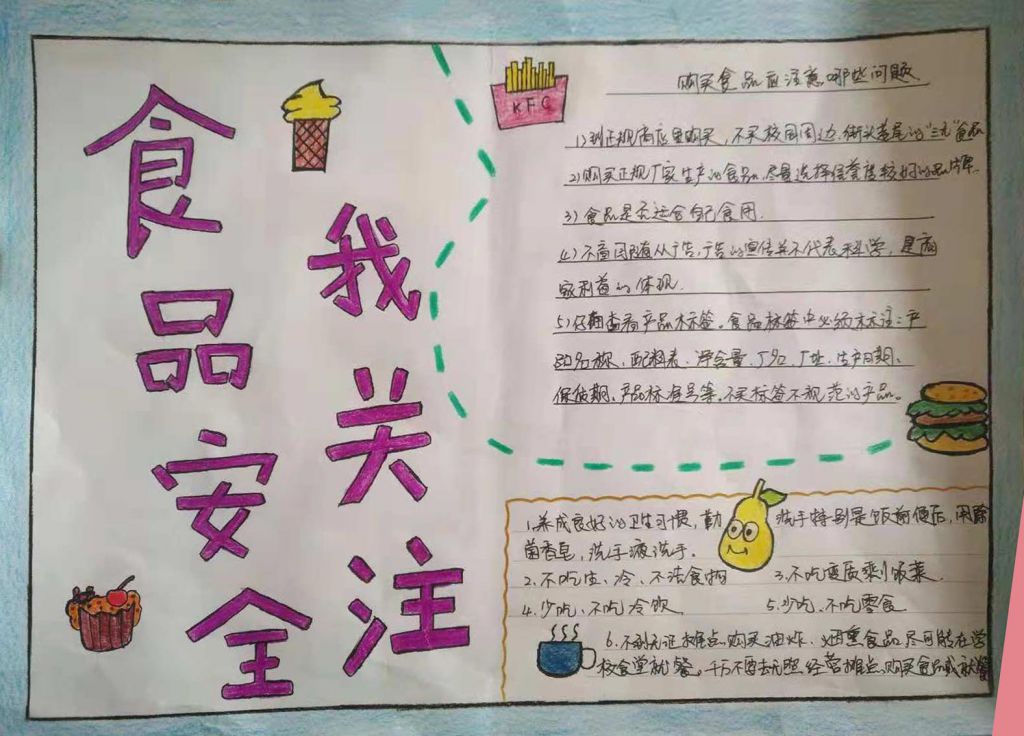 食品安全
我关注
KFC
购买食品应注意哪些问题
1)到正规商店里购买，不买校园周边、街头巷尾的"三无"食品
2)购买正规厂家生产的食品，尽量选择信誉度较好的品牌
3)食品是否适合自己食用.
4)不盲目随从广告,广告的宣传并不代表科学，是商
家利益的体现.
5)仔细查看产品标签。食品标签中必须标注：产
品名称、配料表、净含量、厂名、厂址、生产日期、
保质期、产品标准号等。不买标签不规范的产品。
1.养成良好的卫生习惯，勤洗手特别是饭前便后，用除
菌香皂，洗手液洗手.
2.不吃生、冷、不洁食物 3.不吃变质剩饭菜.
4.少吃、不吃冷饮 5.少吃、不吃零食
6.不到无证摊点购买油炸、烟熏食品尽可能在学
校食堂就餐。千万不要去无照经营摊点购买食品或就餐